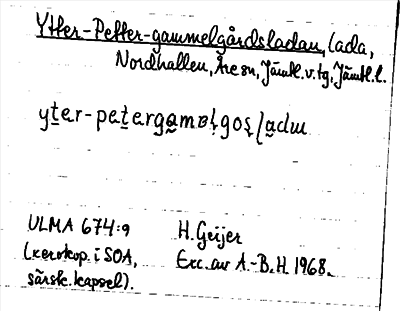 Ytter-Petter-gammelgårdsladan, lada,
Nordhallen, Åre sn, Jämtl. v. tg, Jämtl. l.
ULMA 674:9 H. Geijer
(xerokop. i SOA, Exc. av A.-B. H. 1968.
särsk. kapsel).